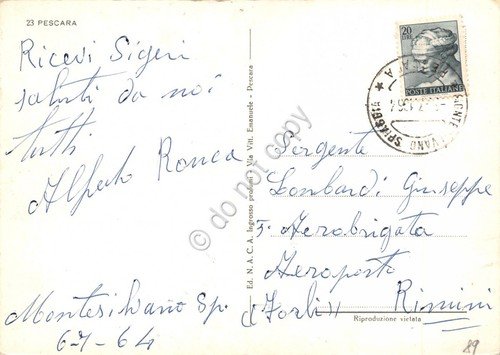 23 PESCARA
Ricevi Sigeri
saluti da noi
tutti
Alfredo Ronca
Montesilvano Sp.
6-7-64
Ed. N. A. C. A. Ingrosso Via Vitt. Emanuele - Pescara
20
LIRE
POSTE ITALIANE
Sergente
Lombardi Giuseppe
5ª Aerobrigata
Aeroporto
(Forlì) Rimini
Riproduzione vietata
89
do not copy